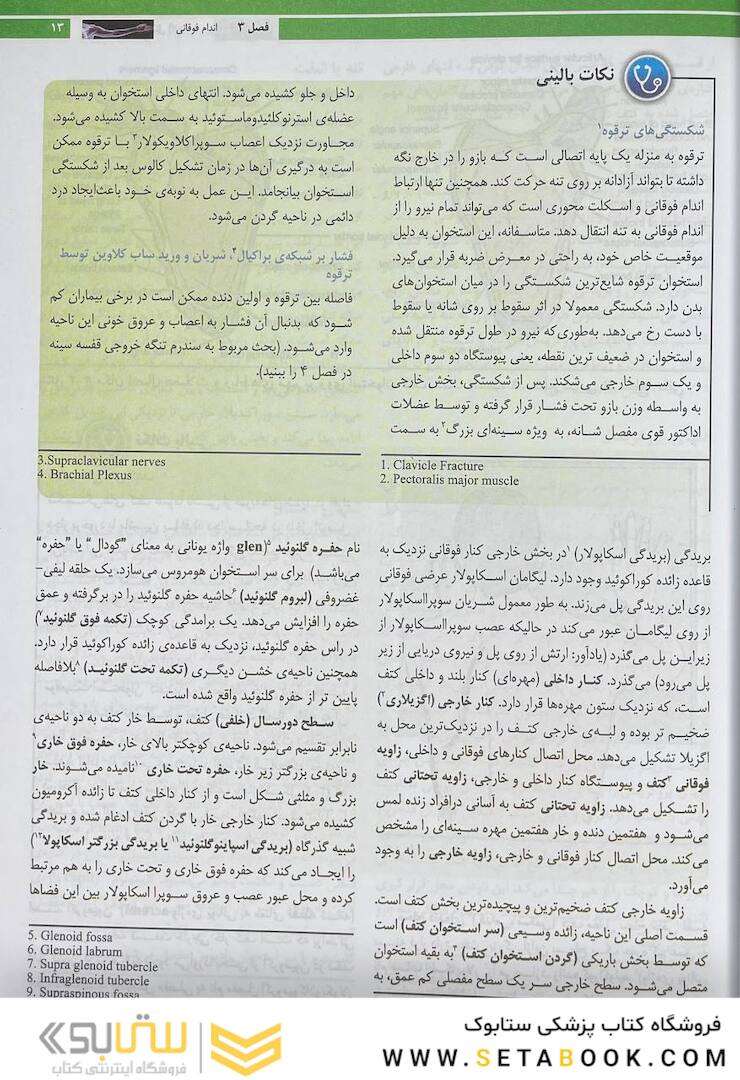 فصل ۳ اندام فوقانی ۱۳
نکات بالینی
شکستگی‌های ترقوه۱
ترقوه به منزله یک پایه اتصالی است که بازو را در خارج نگه
داشته تا بتواند آزادانه بر روی تنه حرکت کند. همچنین تنها ارتباط
اندام فوقانی و اسکلت محوری است که می‌تواند تمام نیرو را از
اندام فوقانی به تنه انتقال دهد. متاسفانه، این استخوان به دلیل
موقعیت خاص خود، به راحتی در معرض ضربه قرار می‌گیرد.
استخوان ترقوه شایع‌ترین شکستگی را در میان استخوان‌های
بدن دارد. شکستگی معمولا در اثر سقوط بر روی شانه یا سقوط
با دست رخ می‌دهد. به‌طوری‌که نیرو در طول ترقوه منتقل شده
و استخوان در ضعیف ترین نقطه، یعنی پیوستگاه دو سوم داخلی
و یک سوم خارجی می‌شکند. پس از شکستگی، بخش خارجی
به واسطه وزن بازو تحت فشار قرار گرفته و توسط عضلات
اداکتور قوی مفصل شانه، به ویژه سینه‌ای بزرگ۲ به سمت
1. Clavicle Fracture
2. Pectoralis major muscle
داخل و جلو کشیده می‌شود. انتهای داخلی استخوان به وسیله
عضله‌ی استرنوکلئیدوماستوئید به سمت بالا کشیده می‌شود.
مجاورت نزدیک اعصاب سوپراکلاویکولار۳ با ترقوه ممکن
است به درگیری آن‌ها در زمان تشکیل کالوس بعد از شکستگی
استخوان بیانجامد. این عمل به نوبه‌ی خود باعث‌ایجاد درد
دائمی در ناحیه گردن می‌شود.
فشار بر شبکه‌ی براکیال۴، شریان و ورید ساب کلاوین توسط
ترقوه
فاصله بین ترقوه و اولین دنده ممکن است در برخی بیماران کم
شود که بدنبال آن فشار به اعصاب و عروق خونی این ناحیه
وارد می‌شود. (بحث مربوط به سندرم تنگه خروجی قفسه سینه
در فصل ۴ را ببینید).
3.Supraclavicular nerves
4. Brachial Plexus
بریدگی (بریدگی اسکاپولار) ۱در بخش خارجی کنار فوقانی نزدیک به
قاعده زائده کوراکوئید وجود دارد. لیگامان اسکاپولار عرضی فوقانی
روی این بریدگی پل می‌زند. به طور معمول شریان سوپرااسکاپولار
از روی لیگامان عبور می‌کند در حالیکه عصب سوپرااسکاپولار از
زیراین پل می‌گذرد (یادآور: ارتش از روی پل و نیروی دریایی از زیر
پل می‌رود) می‌گذرد. کنار داخلی (مهره‌ای) کنار بلند و داخلی کتف
است، که نزدیک ستون مهره‌ها قرار دارد. کنار خارجی (اگزیلاری۲)
ضخیم تر بوده و لبه‌ی خارجی کتف را در نزدیک‌ترین محل به
اگزیلا تشکیل می‌دهد. محل اتصال کنارهای فوقانی و داخلی، زاویه
فوقانی ۳کتف و پیوستگاه کنار داخلی و خارجی، زاویه تحتانی کتف
را تشکیل می‌دهد. زاویه تحتانی کتف به آسانی درافراد زنده لمس
می‌شود و هفتمین دنده و خار هفتمین مهره سینه‌ای را مشخص
می‌کند. محل اتصال کنار فوقانی و خارجی، زاویه خارجی را به وجود
می‌آورد.
زاویه خارجی کتف ضخیم‌ترین و پیچیده‌ترین بخش کتف است.
قسمت اصلی این ناحیه، زائده وسیعی (سر استخوان کتف) است
که توسط بخش باریکی (گردن استخوان کتف) ۴به بقیه استخوان
متصل می‌شود. سطح خارجی سر یک سطح مفصلی کم عمق، به
نام حفره گلنوئید ۵(glen واژه یونانی به معنای "گودال" یا "حفره"
می‌باشد) برای سر استخوان هومروس می‌سازد. یک حلقه لیفی-
غضروفی (لبروم گلنوئید) ۶حاشیه حفره گلنوئید را در برگرفته و عمق
حفره را افزایش می‌دهد. یک برامدگی کوچک (تکمه فوق گلنوئید۷)
در راس حفره گلنوئید، نزدیک به قاعده‌ی زائده کوراکوئید قرار دارد.
همچنین ناحیه‌ی خشن دیگری (تکمه تحت گلنوئید) ۸بلافاصله
پایین تر از حفره گلنوئید واقع شده است.
سطح دورسال (خلفی) کتف، توسط خار کتف به دو ناحیه‌ی
نابرابر تقسیم می‌شود. ناحیه‌ی کوچکتر بالای خار، حفره فوق خاری۹
و ناحیه‌ی بزرگتر زیر خار، حفره تحت خاری ۱۰نامیده می‌شوند. خار
بزرگ و مثلثی شکل است و از کنار داخلی کتف تا زائده آکرومیون
کشیده می‌شود. کنار خارجی خار با گردن کتف ادغام شده و بریدگی
شبیه گذرگاه (بریدگی اسپاینوگلنوئید۱۱ یا بریدگی بزرگتر اسکاپولا۱۲)
را ایجاد می‌کند که حفره فوق خاری و تحت خاری را به هم مرتبط
کرده و محل عبور عصب و عروق سوپرا اسکاپولار بین این فضاها
5. Glenoid fossa
6. Glenoid labrum
7. Supra glenoid tubercle
8. Infraglenoid tubercle
9. Supraspinous fossa
فروشگاه کتاب پزشکی ستابوک
WWW.SETABOOK.COM
ستابوک
فروشگاه اینترنتی کتاب